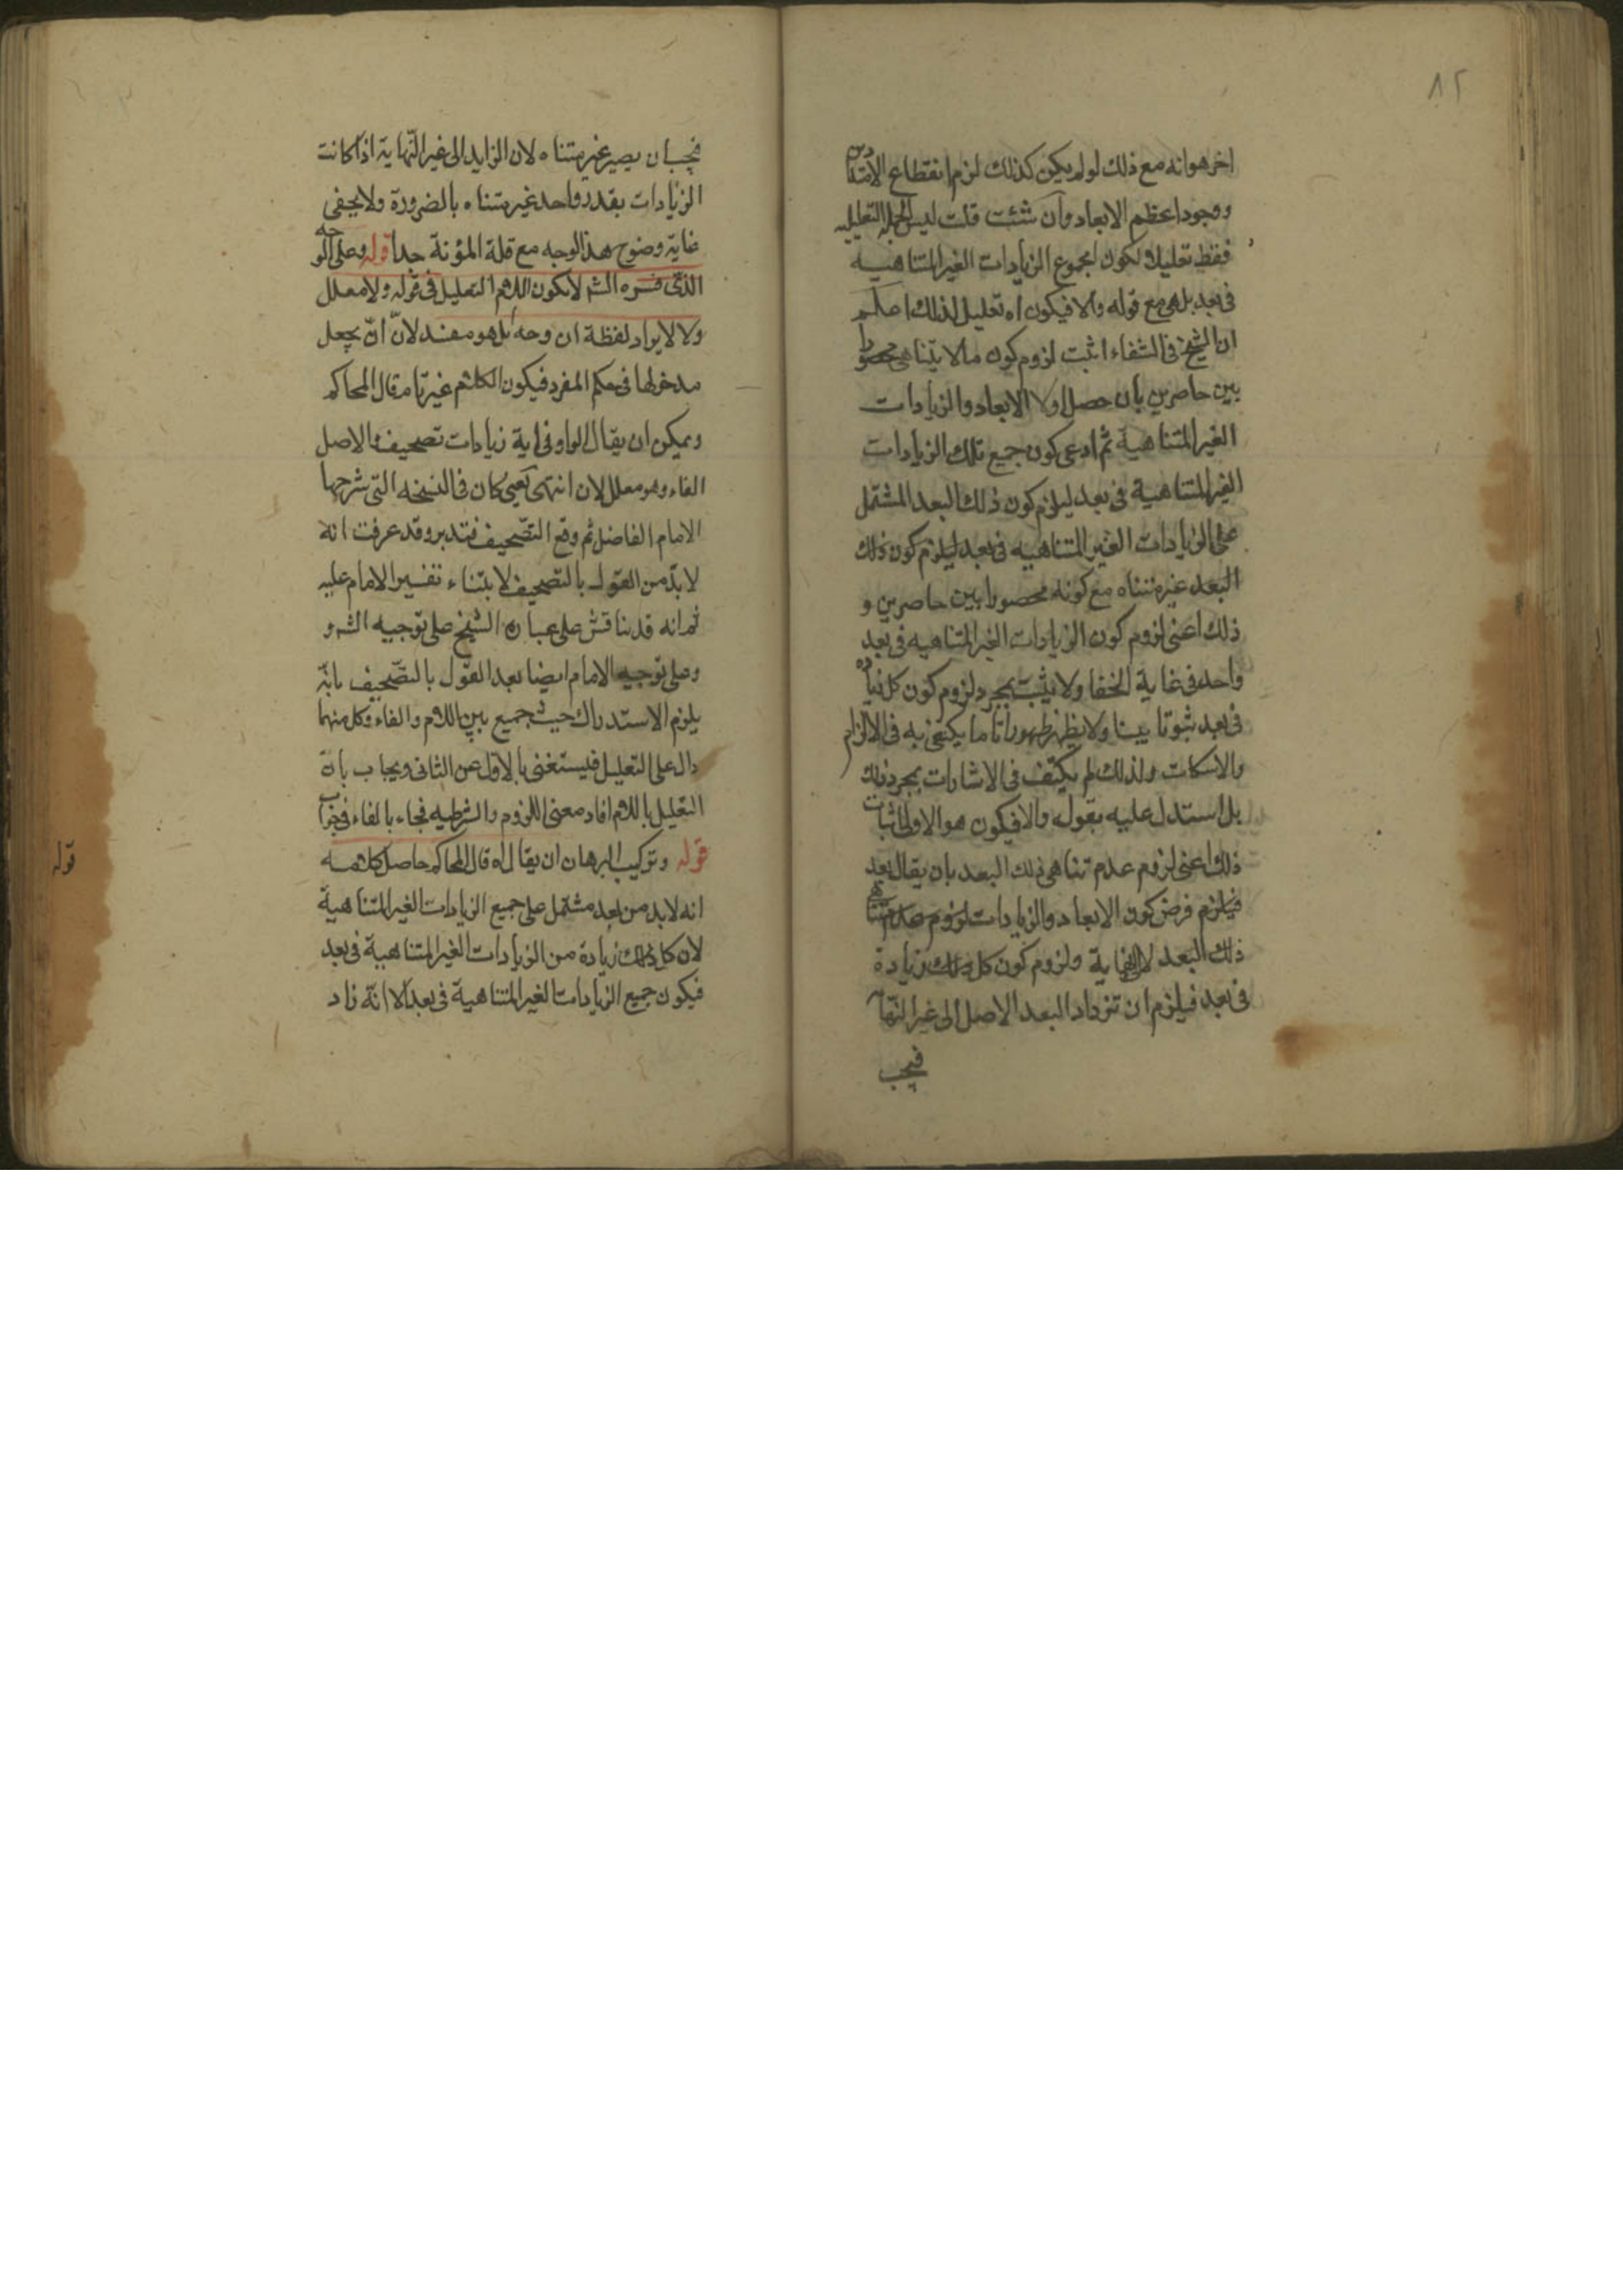 ٨٢
اخر هو انه مع ذلك لو لم يكن كذلك لزم انقطاع الامتداد
ووجود اعظم الابعاد وان شئت قلت ليس الجملة التعليليه
فقط تعليلا لكون مجموع الزيادات الغير المتناهيه
في بعد بل هي مع قوله والا فيكون اه تعليل لذلك اعلم
ان الشيخ في الشفاء اثبت لزوم كون ما لا يتناهى محصورا
بين حاصرين بان حصل اولا الابعاد والزيادات
الغير المتناهية ثم ادعى كون جميع تلك الزيادات
الغير المتناهية في بعد ليلزم كون ذلك البعد المشتمل
على الزيادات الغير المتناهيه في بعد ليلزم كون ذلك
البعد غير متناه مع كونه محصورا بين حاصرين و
ذلك اعنى لزوم كون الزيادات الغير المتناهيه في بعد
واحد في غاية الخفا ولا يثبت بمجرد لزوم كون كل زيادة
في بعد ثبوتا بينا ولا يظهر ظهورا تاما يكتفى به في الالزام
والاسكات ولذلك لم يكتف في الاشارات بمجرد ذلك
بل استدل عليه بقوله والا فيكون هو الاولى اثبات
ذلك اعنى لزوم عدم تناهى ذلك البعد بان يقال بعد
فيلزم فرض كون الابعاد والزيادات لزوم عدم تناهي
ذلك البعد لا الى نهاية ولزوم كون كل زيادة
في بعد فيلزم ان تزداد البعد الاصل الى غير النها
فيجب
فيجب ان يصير غير متناه لان الزايد الى غير النهاية اذا كانت
الزيادات بقدر واحد غير متناه بالضرورة ولا يخفى
غاية وضوح هذا الوجه مع قلة المؤنة جدا قوله وعلى الوجه
الذى فسره الشم لا يكون اللام التعليل في قوله ولا معلل
ولا لايراد لفظة ان وجه بل هو مفسد لان ان يجعل
مدخولها في حكم المفرد فيكون الكلام غير تام قال المحاكم
ويمكن ان يقال الواو في اية زيادات تصحيف والاصل
الفاء وهو معلل لان انتهى يعنى كان في النسخه التى شرحها
الامام الفاضل ثم وقع التصحيف فتدبر وقد عرفت انه
لا بد من القول بالتصحيف لابتناء تفسير الامام عليه
ثم انه قد يناقش على عبارة الشيخ على توجيه الشم و
وعلى توجيه الامام ايضا بعد القول بالتصحيف بانه
يلزم الاستدراك حيث جميع بين اللام والفاء وكل منهما
دال على التعليل فليستغنى بالاول عن الثانى ويجاب بان
التعليل باللام افاد معنى اللزوم والشرطيه فجاء بالفاء في جواب
قوله وتركيب البرهان ان يقال اه قال المحاكم حاصل كلامه
انه لا بد من بعد مشتمل على جميع الزيادات الغير المتناهية
لان كل زيادة من الزيادات الغير المتناهية في بعد
فيكون جميع الزيادات الغير المتناهية في بعد الا انه زاد
قوله